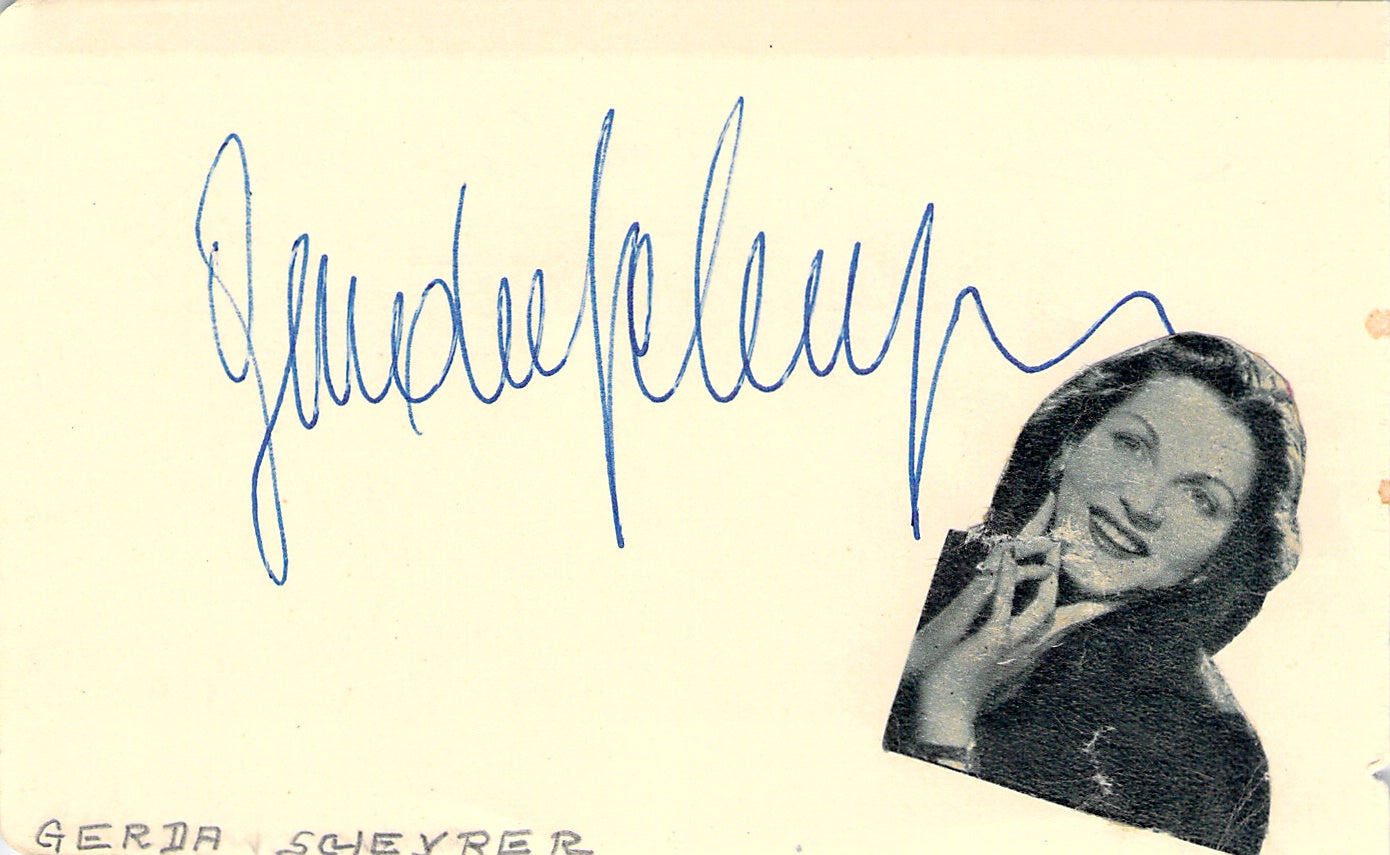 Gerda Scheyrer
GERDA SCHEYRER